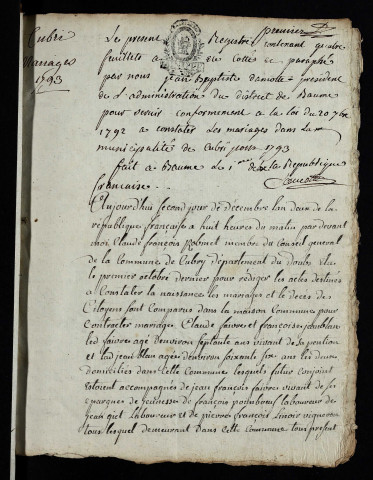 Cubri
Mariages
1793
premier
Le present Registre contenant quatre
feuillets a été cottés et paraphé
par nous Jean Baptiste president
de l'administration du district de Baume
pour servir conformement a la loi du 20 7bre
1792 a constater les mariages dans la
municipalité de Cubri pour 1793
fait a Baume le 1er de la Republique
francaise
Aujourd'hui second jour de decembre l'an deux de la
république francaise a huit heures du matin par devant
moi Claude françois membre du Conseil general
de la Commune de Cubry departement du doubs elu
le premier octobre dernier pour rediger les actes destinés
a Constater la naissance les mariages et le deces des
Citoyens sont Comparus dans la maison Commune pour
Contracter mariage Claude faivre et francoise jeanblan
led faivre agé denviron septante ans vivant de sa pention
et lad jeanblan agée denviron soixante six ans les deux
domiciliés dans Cette Commune lesquels futur Conjoint
etoient accompagnés de jean francois faivre vivant de ses
epargnes de francois laboureur de
jean laboureur et de pierre francois vigneron
tous lesquel demeurant dans Cette Commune tous present